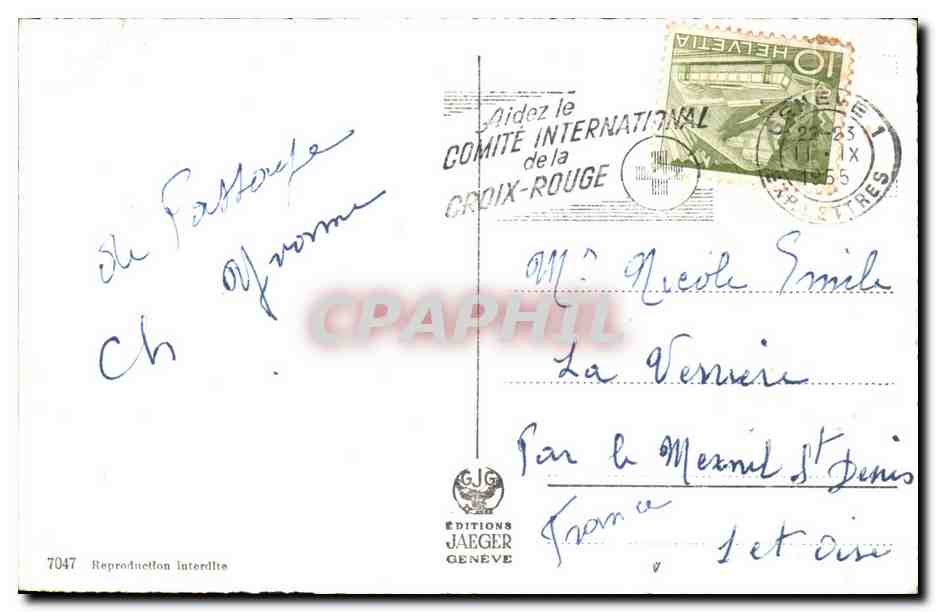 de Passage
Yvonne
Ch
Aidez le
COMITÉ INTERNATIONAL
de la
CROIX-ROUGE
HELVETIA 10
GENÈVE 1
22-23
11.IX
1955
EXP. LETTRES
Mr Nicole Emile
La Verrière
Par le Mesnil St Denis
France
S et Oise
GJG
ÉDITIONS
JAEGER
GENÈVE
7047 Reproduction interdite
CPAPHIL